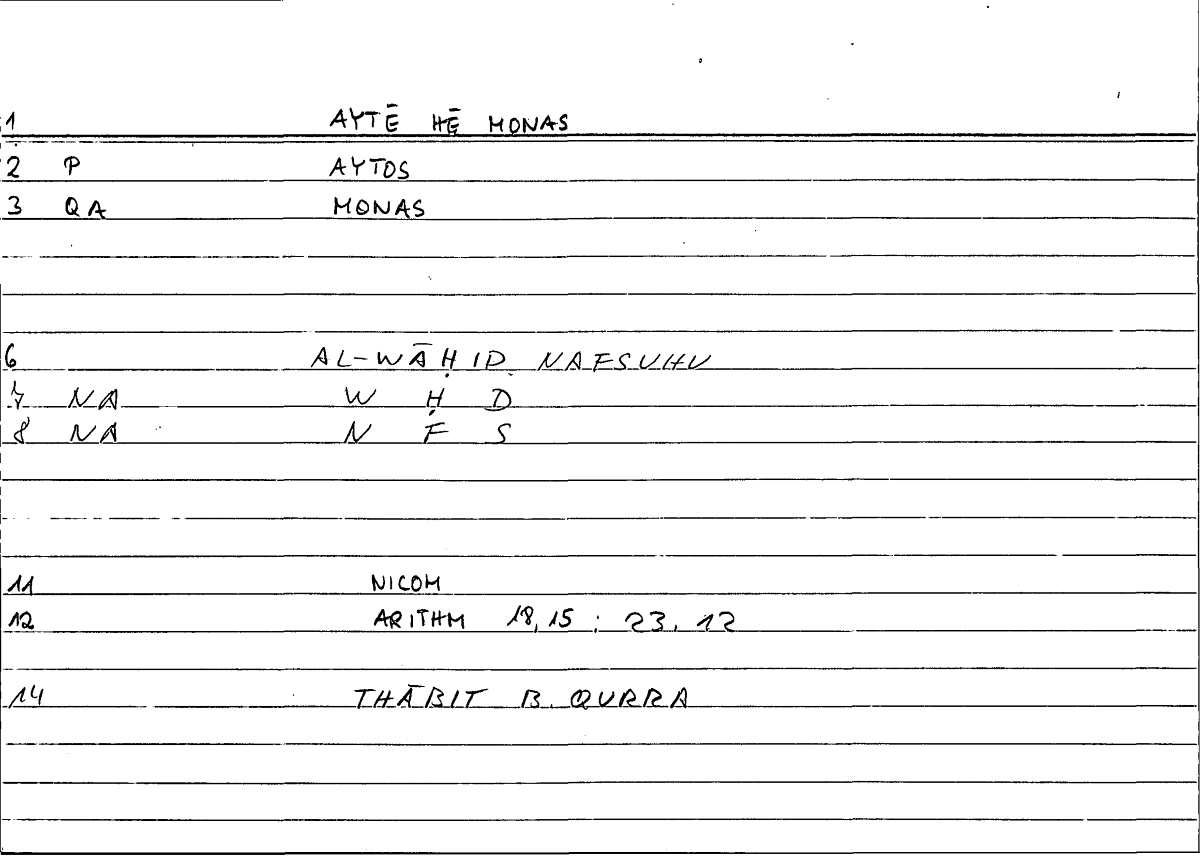 1 AYTĒ HĒ MONAS
2 P AYTOS
3 QA MONAS
6 AL-WĀḤID NAFSUHU
7 NA W Ḥ D
8 NA N F S
11 NICOM
12 ARITHM 18,15 : 23,12
14 THĀBIT B. QURRA